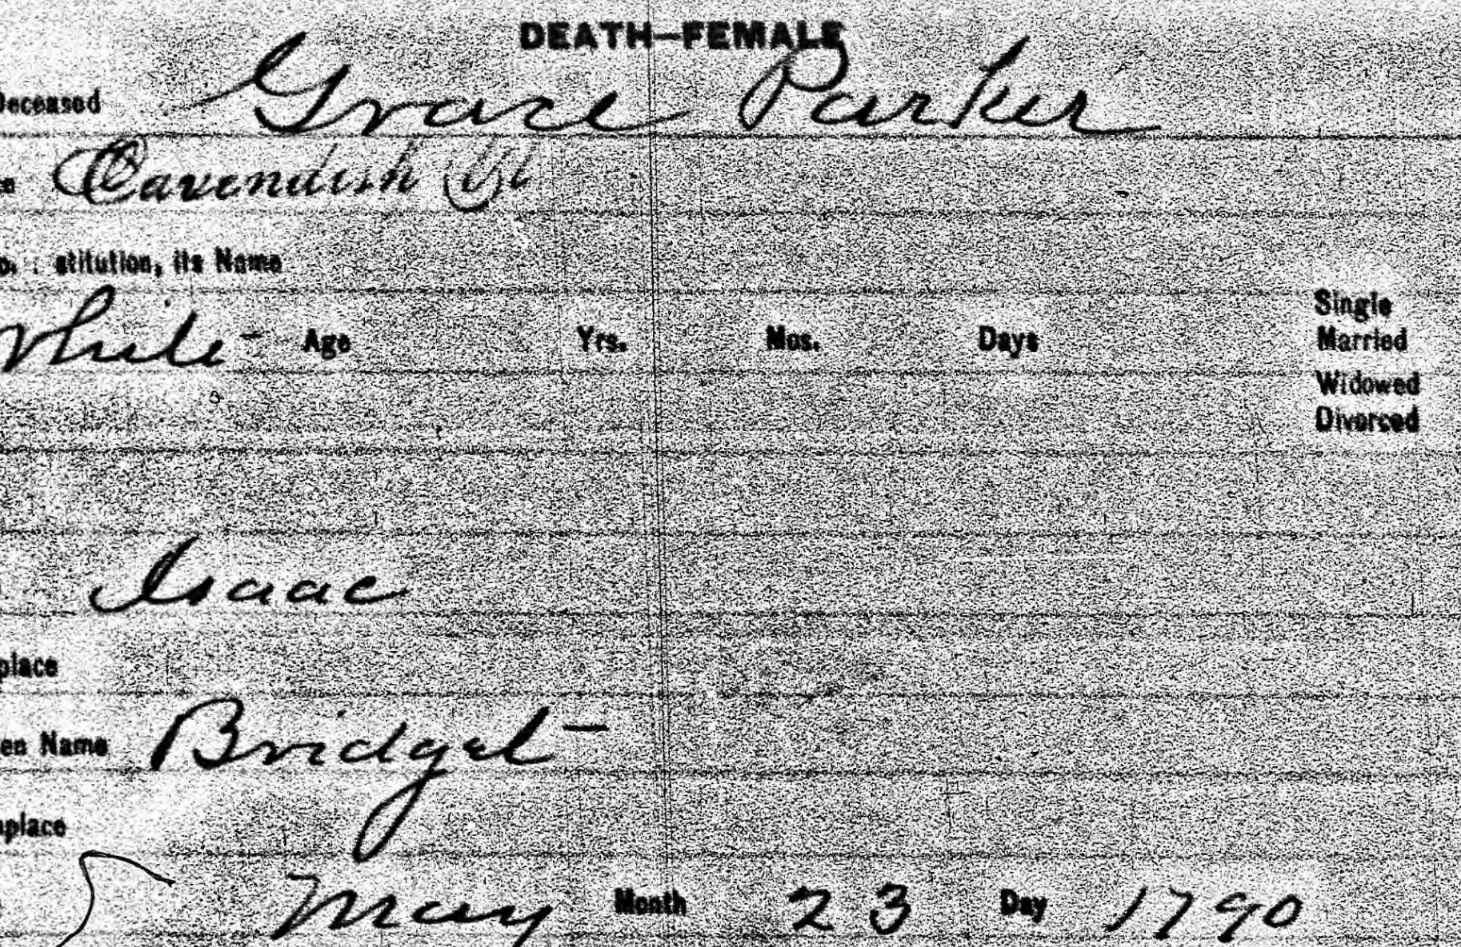 DEATH—FEMALE
Deceased Grace Parker
Cavendish Vt
stitution, its Name
White Age Yrs. Mos. Days Single
Married
Widowed
Divorced
Isaac
place
en Name Bridget
place
May Month 23 Day 1790